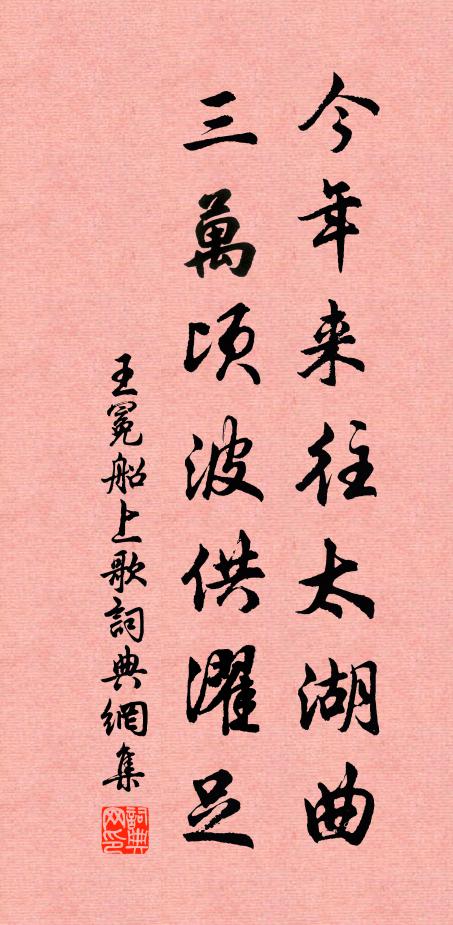 今年来往太湖曲
三萬頃波供濯足
王冕船上歌詞典網集
詞典
网印